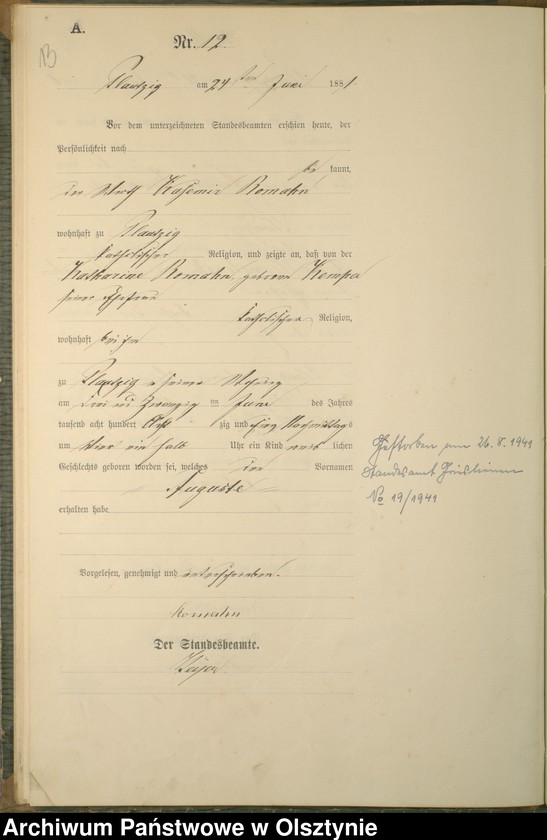 A.
B
Nr. 12.
Plautzig am 24ten Juni 1881
Vor dem unterzeichneten Standesbeamten erschien heute, der
Persönlichkeit nach
be kannt,
der Wirth Kasemir Romahn
wohnhaft zu Plautzig
katholischer Religion, und zeigte an, daß von der
Katharine Romahn, geborene Kempa
seiner Ehefrau
katholischer Religion,
wohnhaft bei ihm
zu Plautzig in seiner Wohnung
am drei und zwanzig ten Juni des Jahres
tausend acht hundert Acht zig und Eins Nachmittags
um Uhr ein Kind weib lichen
Geschlechts geboren worden sei, welches den Vornamen
Auguste
erhalten habe
Vorgelesen, genehmigt und unterschrieben.
Romahn
Der Standesbeamte.
Gestorben am 26.8.1941
Standesamt
No 19/1941
Archiwum Państwowe w Olsztynie